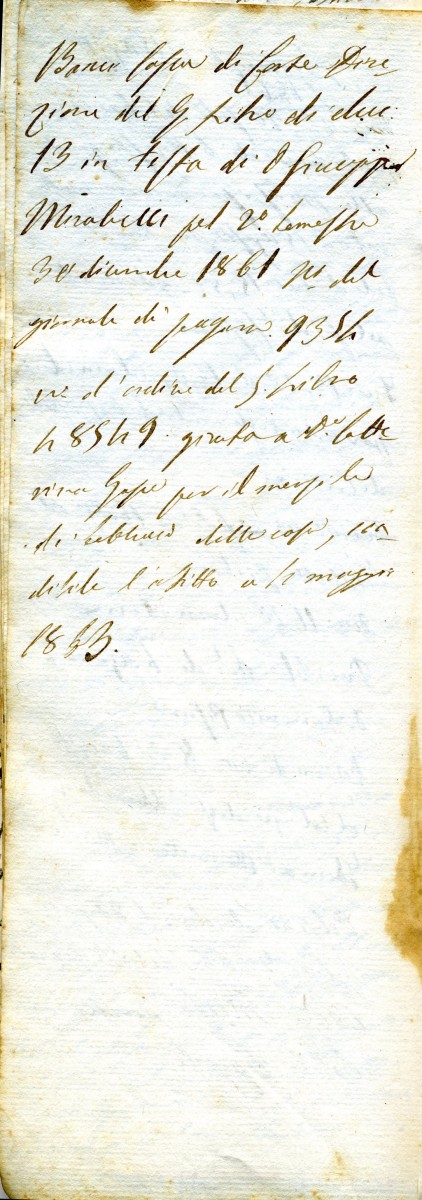 Banco Cassa di Corte Dire=
zione del G. Libro di duc:
13 in testa di D Giuseppe
Mirabelli pel 2º semestre
30 dicembre 1861 Nº del
giornale di pagam. 9354
nº d'ordine del G Libro
48549 girata a D.ª Catte=
rina per il mensile
di febbraio della casa, sca=
dibile l'affitto a 4 maggio
1863.